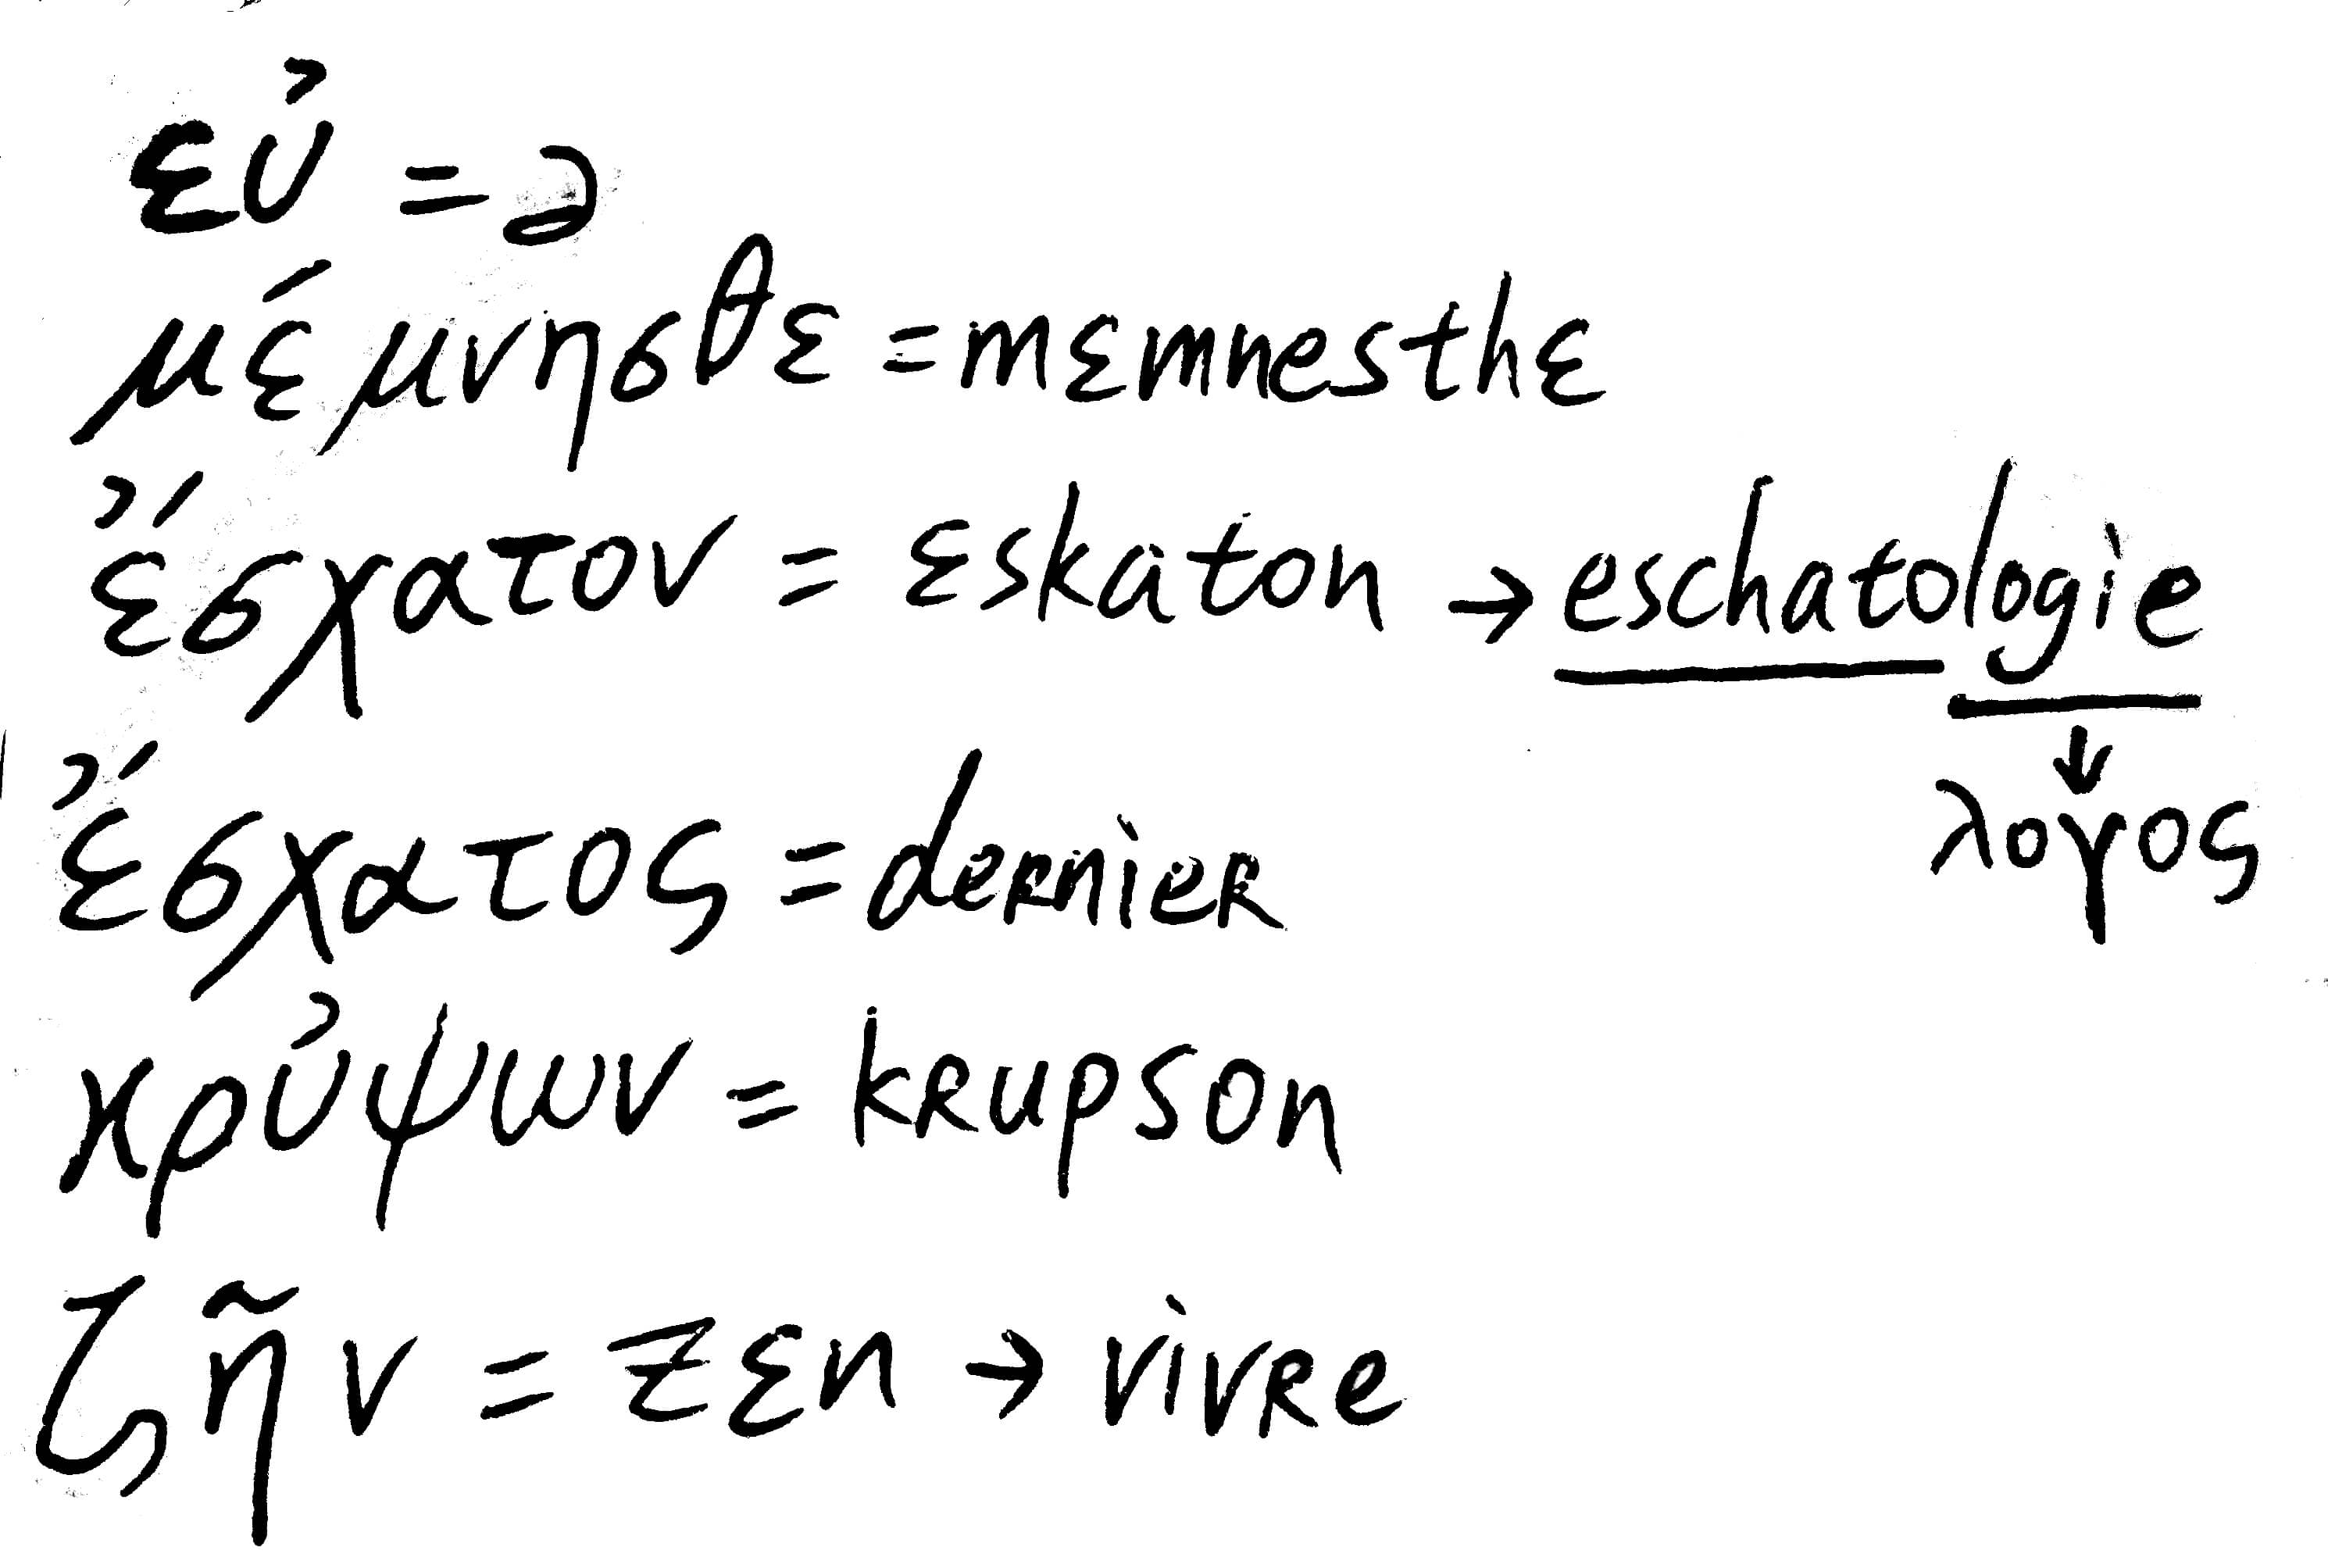 εὐ = ə
μέμνησθε = mεmnesthε
ἔσχατον = εskaton → eschatologie
↓
λογος
ἔσχατος = dernier
κρὐψων = krupson
ζῆν = zεn → vivre